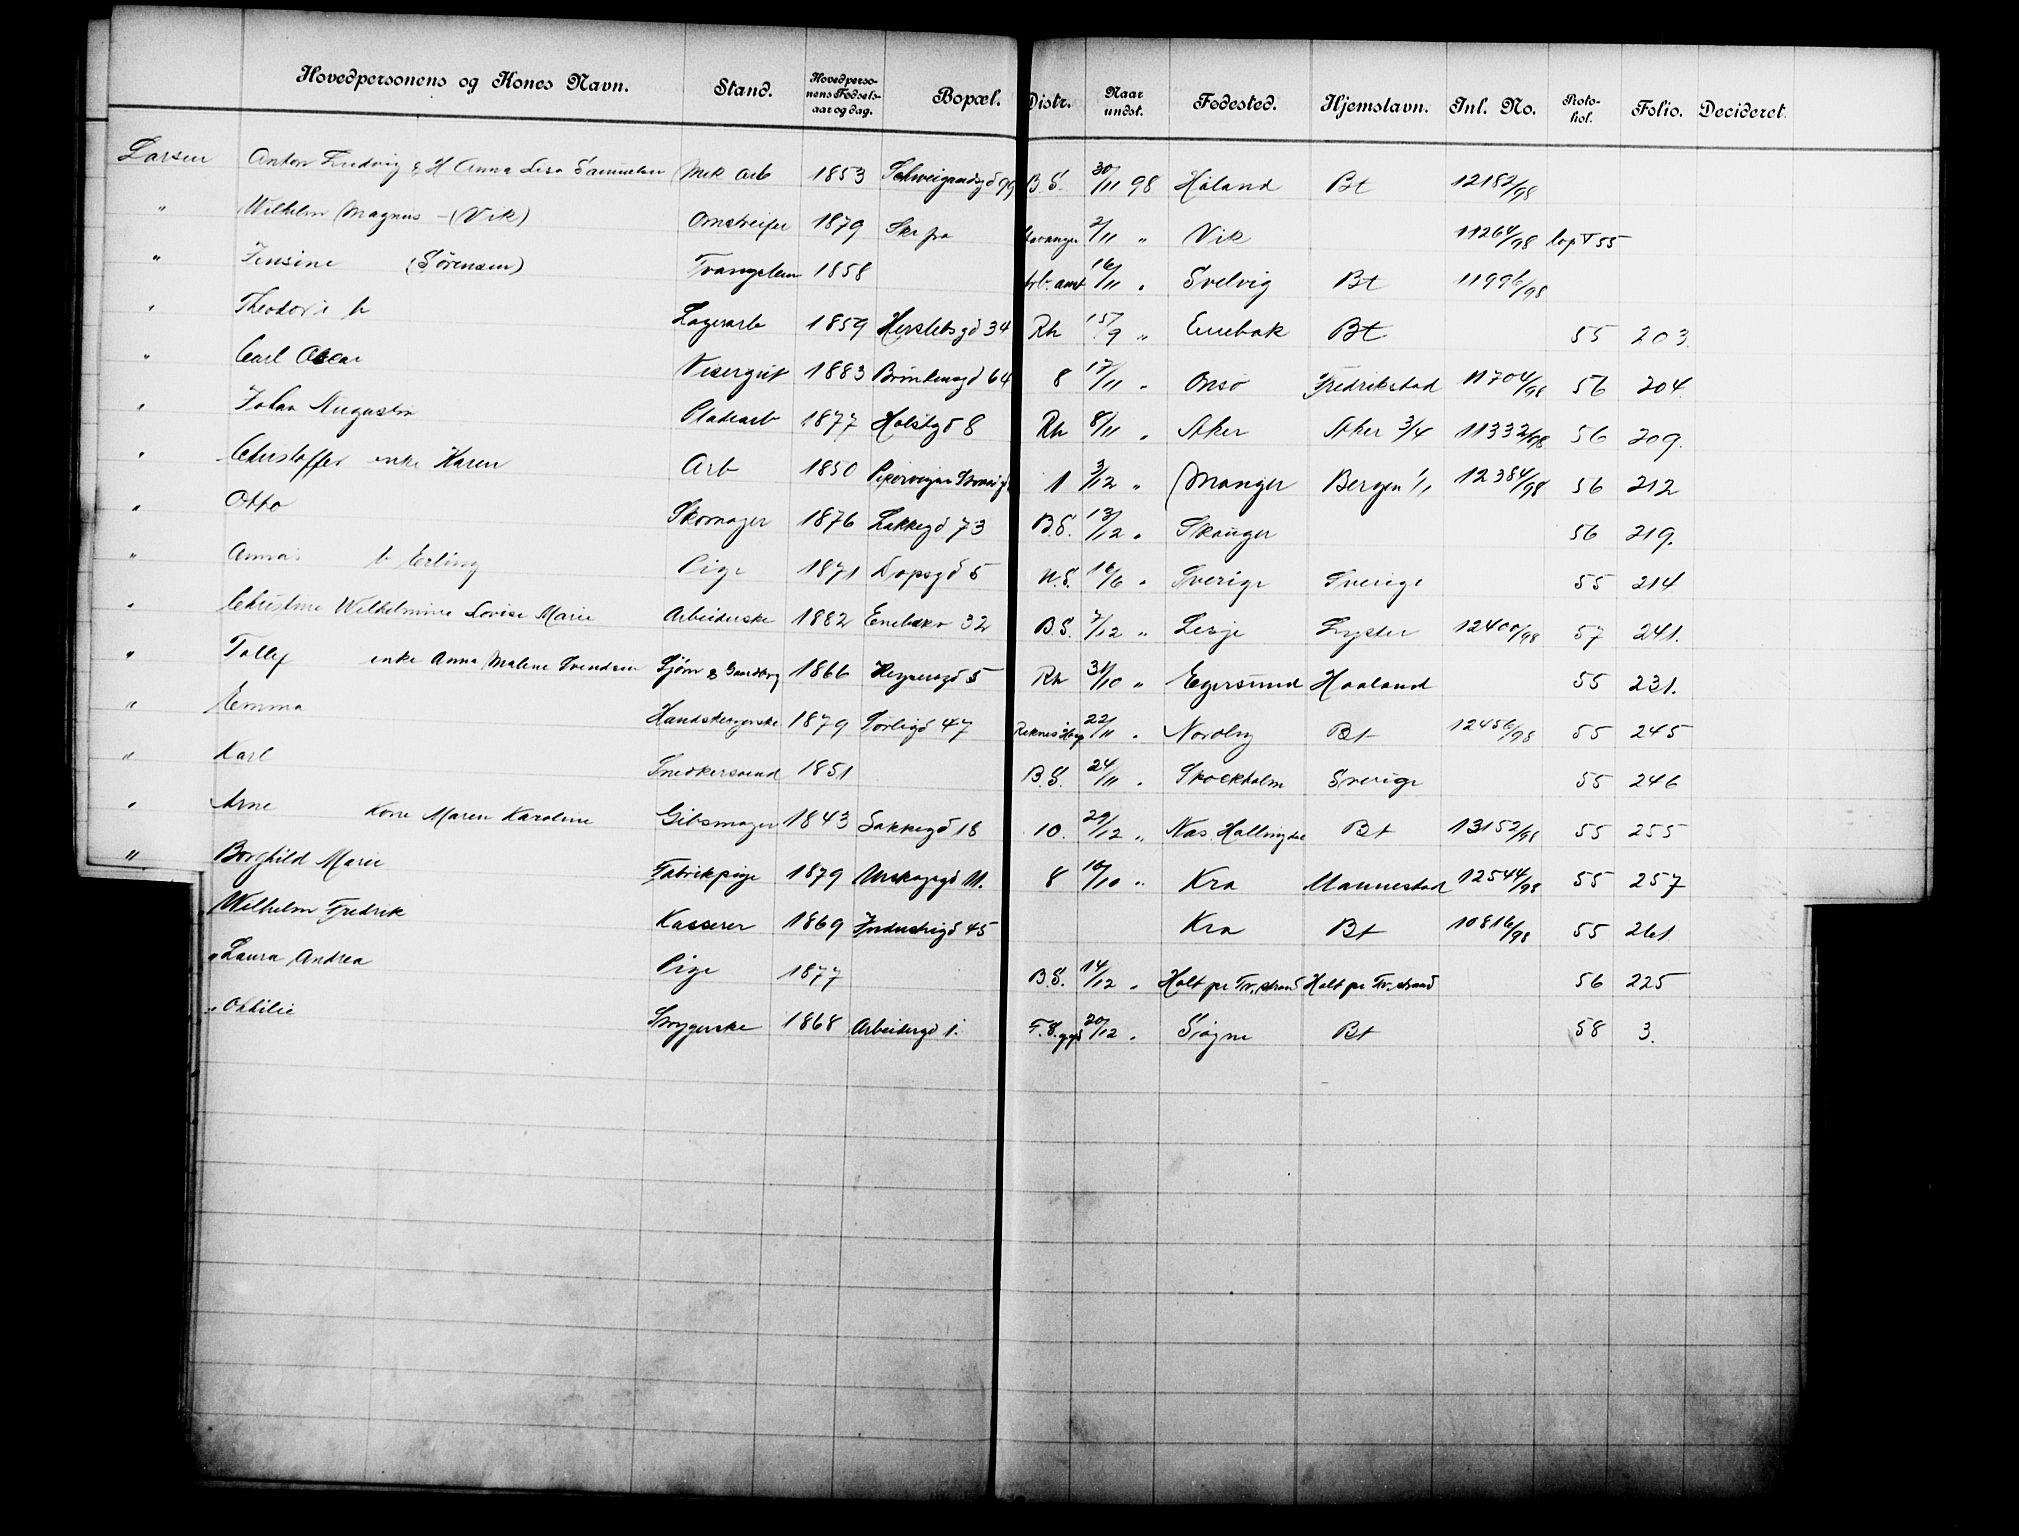 Hovedpersonens og Kones Navn. Stand. Hovedperso-nens Fødsels-aar og dag. Bopæl. Distr. Naar undst. Fødested. Hjemstavn. Inl. No. Proto-kol. Folio. Decideret.
Larsen Anton Ludvig & H Anna Lisa Samuelsen Mek Arb 1853 Schweigaardsgd 99 B.S. 30/11 98 Høland Bt 12182/98
" Wilhelm Magnus - (Vik) Omstreifer 1879 Skr fra Stavanger 2/11 " Vik 11264/98 55
" Jensine (Sørensen) Tvangslem 1858 Arb. anst 16/11 " Svelvig Bt 11996/98
" Theodor Lagerarb 1859 Herslebsgd 34 Rh 15/9 " Enebak Bt 55 203.
" Carl Oscar Visergut 1883 64 8 17/11 " Onsø Fredrikstad 11704/98 56 204.
" Johan Augustin Pladearb 1877 Holstgd 8 Rh 8/11 " Aker Aker 3/4 11332/98 56 209.
" Christoffer enke Karen Arb 1850 1 3/12 " Manger Bergen 1/1 12384/98 56 212
" Otto Skomager 1876 Lakkegd 73 B.S. 13/12 " Skauger 56 219.
" Anna b Erling Pige 1871 Dopsgd 5 U.S. 16/6 " Sverige Sverige 55 214
" Christine Wilhelmine Lovise Marie Arbeiderske 1882 Enebakv 32 B.S. 7/12 " Lesje Lyster 12400/98 57 241.
" Tollef enke Anna Malene Svendsen 1866 5 Rh 31/10 " Egersund Haaland 55 231.
" Emma Handskesyerske 1879 47 Reknes Hosp 22/11 " Nordby Bt 12456/98 55 245
" Karl Snedkersvend 1851 B.S. 24/11 " Stockholm Sverige 55 246
" Arne Kone Maren Karoline Gibsmager 1843 Lakkegd 18 10. 29/12 " Næs Hallingdal Bt 13152/98 55 255
" Borghild Marie Fabrikpige 1879 11. 8 10/10 " Kra Mannestad 12544/98 55 257
" Wilhelm Fredrik Kasserer 1869 Industrigd 45 Kra Bt 10816/98 55 261.
" Laura Andrea Pige 1877 B.S. 14/12 " Holt pr Tv.strand Holt pr Tv.strand 56 225
" Othilie Strygerske 1868 Arbeidergd 1. 20/12 " Søgne Bt 58 3.